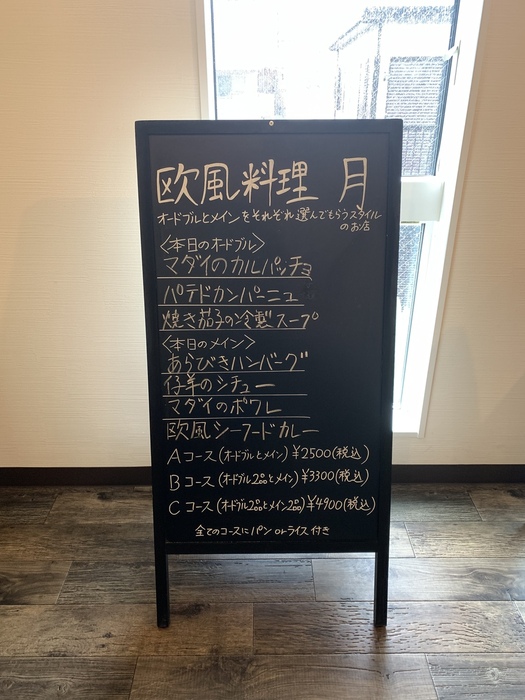 欧風料理 月
オードブルとメインをそれぞれ選んでもらうスタイル
のお店
〈本日のオードブル〉
マダイのカルパッチョ
パテドカンパーニュ
焼き茄子の冷製スープ
〈本日のメイン〉
あらびきハンバーグ
仔羊のシチュー
マダイのポワレ
欧風シーフードカレー
Aコース(オードブルとメイン)¥2500(税込)
Bコース(オードブル2品とメイン)¥3300(税込)
Cコース(オードブル2品とメイン2品)¥4900(税込)
全てのコースにパンorライス付き